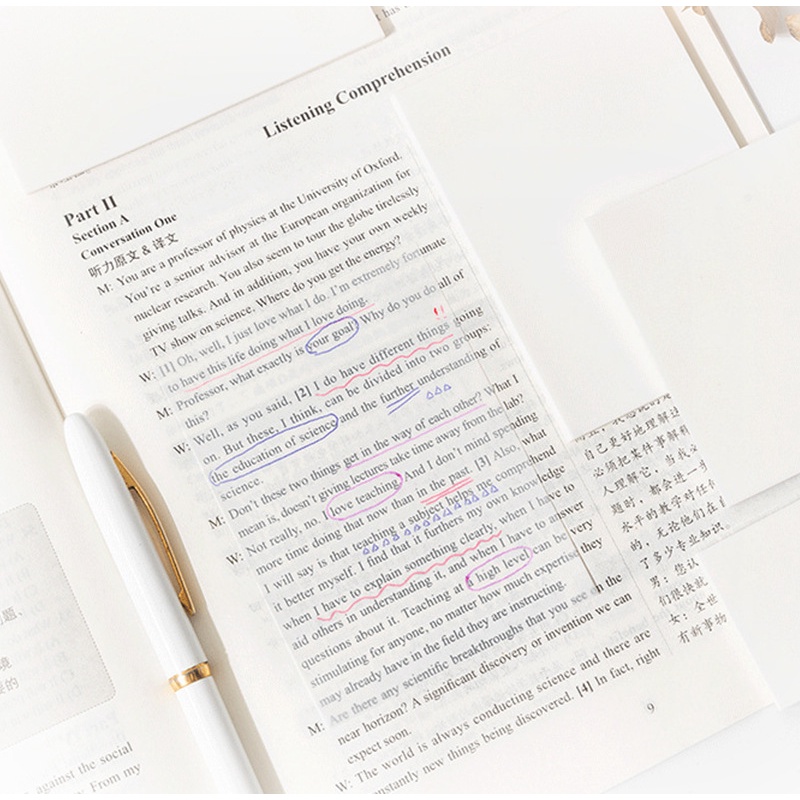 Listening Comprehension
Part II
Section A
Conversation One
听力原文 & 译文
M: You are a professor of physics at the University of Oxford.
You're a senior advisor at the European organization for
nuclear research. You also seem to tour the globe tirelessly
giving talks. And in addition, you have your own weekly
TV show on science. Where do you get the energy?
W: [1] Oh, well, I just love what I do. I'm extremely fortunate
to have this life doing what I love doing.
M: Professor, what exactly is your goal? Why do you do all of
this?
W: Well, as you said, [2] I do have different things going
on. But these, I think, can be divided into two groups:
the education of science and the further understanding of
science.
M: Don't these two things get in the way of each other? What I
mean is, doesn't giving lectures take time away from the lab?
W: Not really, no. I love teaching. And I don't mind spending
more time doing that now than in the past. [3] Also, what
I will say is that teaching a subject helps me comprehend
it better myself. I find that it furthers my own knowledge
when I have to explain something clearly, when I have to
aid others in understanding it, and when I have to answer
questions about it. Teaching at a high level can be very
stimulating for anyone, no matter how much expertise they
may already have in the field they are instructing.
M: Are there any scientific breakthroughs that you see on the
near horizon? A significant discovery or invention we can
expect soon.
W: The world is always conducting science and there are
constantly new things being discovered. [4] In fact, right
9
自己更好地理解
必须把某件事解释
人理解它，当我
题时，都会进一步
水平的教学时任
的，无论他们在
了多少专业知识。
男：您认
们很快就
女：全世
有新事物
问题、
境
要的
against the social
From my